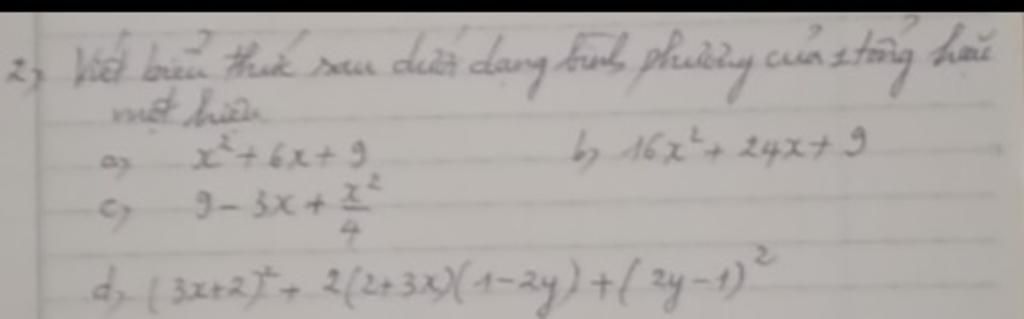 2) Viết biểu thức sau dưới dạng bình phương của 1 tổng hoặc
một hiệu
a) x² + 6x + 9 b) 16x² + 24x + 9
c) 9 - 3x + x²/4
d) (3x+2)² + 2(2+3x)(1-2y) + (2y-1)²